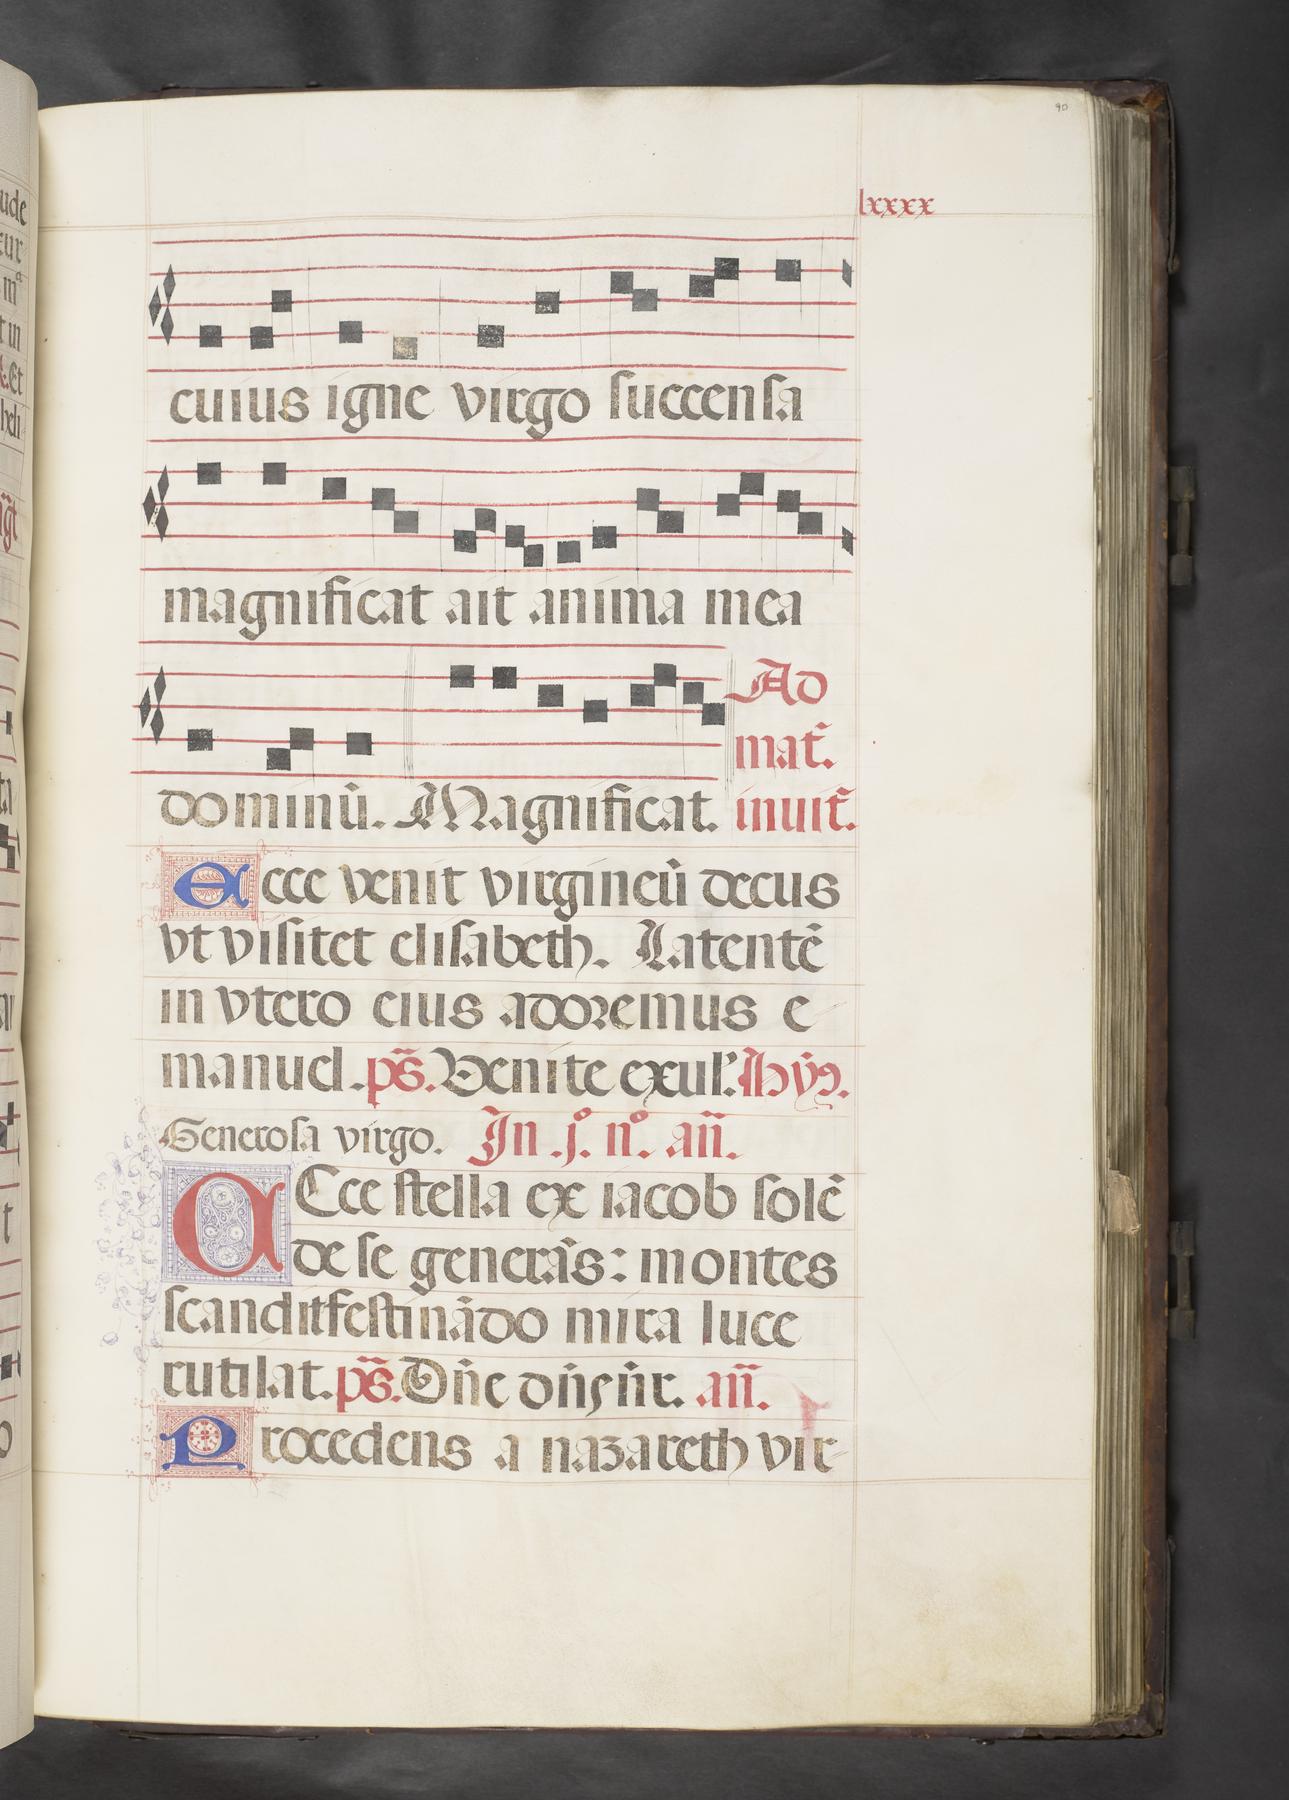 90
lxxxx
cuius igne virgo succensa
magnificat ait anima mea
Ad
mat̃.
dominū. Magnificat. inuit̃.
Ecce venit virgineū decus
vt visitet elisabeth. Latentē
in vtero eius adoremus e
manuel. ps̄. Venite exul̃. Hỹ.
Generosa virgo. In .j.º n.º añ.
ECce stella ex iacob solē
de se generās: montes
scandit festinādo mira luce
rutilat. ps̄. Dñe dñs ñr. añ.
Procedens a nazareth vir